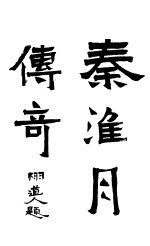 秦淮月
傳奇
翊道人題